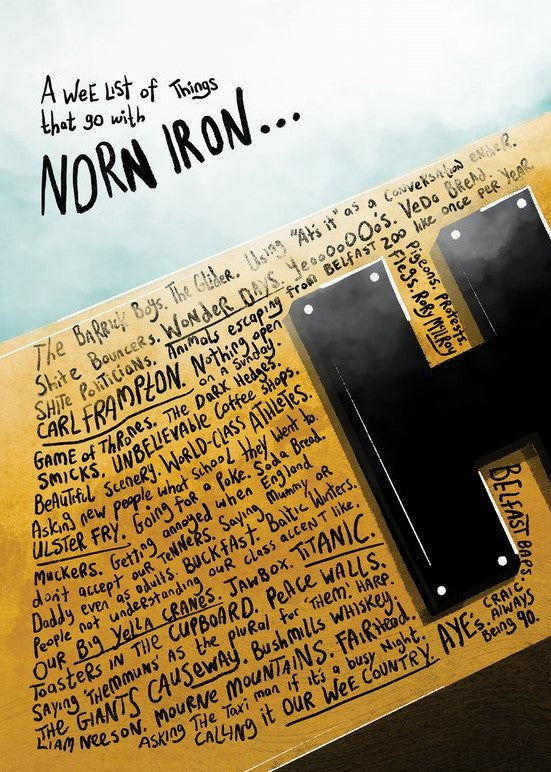 A WEE LIST of Things
that go with
NORN IRON...
The BARRICK Boys. The Glider. Using "Ats it" as a conversation ender.
Shite Bouncers. WONDER DAYS. Yeooooo's. Veda Bread.
SHITE Politicians. Animals escaping from BELFAST ZOO like once per Year.
CARL FRAMPTON. Nothing open on a Sunday.
GAME of THRONES. The DARK Hedges.
SMICKS. UNBELIEVABLE Coffee Shops.
Beautiful Scenery. WORLD-CLASS Athletes.
Asking new people what school they went to.
ULSTER FRY. Going for a Poke. Soda Bread.
Muckers. Getting annoyed when England
don't accept our Tenners. Saying Mummy or
Daddy even as adults. BUCKFAST. Baltic Winters.
People not understanding our class accent like.
OUR Big YELLA CRANES. JAWBOX. TITANIC.
Toasters IN THE CUPBOARD. PEACE WALLS.
Saying 'THEMMUNS' as the plural for 'THEM'. HARP.
THE GIANTS CAUSEWAY. Bushmills WHISKEY.
LIAM NEESON. MOURNE MOUNTAINS. FAIRHead.
ASKING The TAXI man if it's a busy Night.
CALLING it OUR WEE COUNTRY.
Pigeons. Protests.
Flegs. RORY McIlROY
BELFAST BAPS.
AYE's. CRAIC
ALWAYS
Being 90.